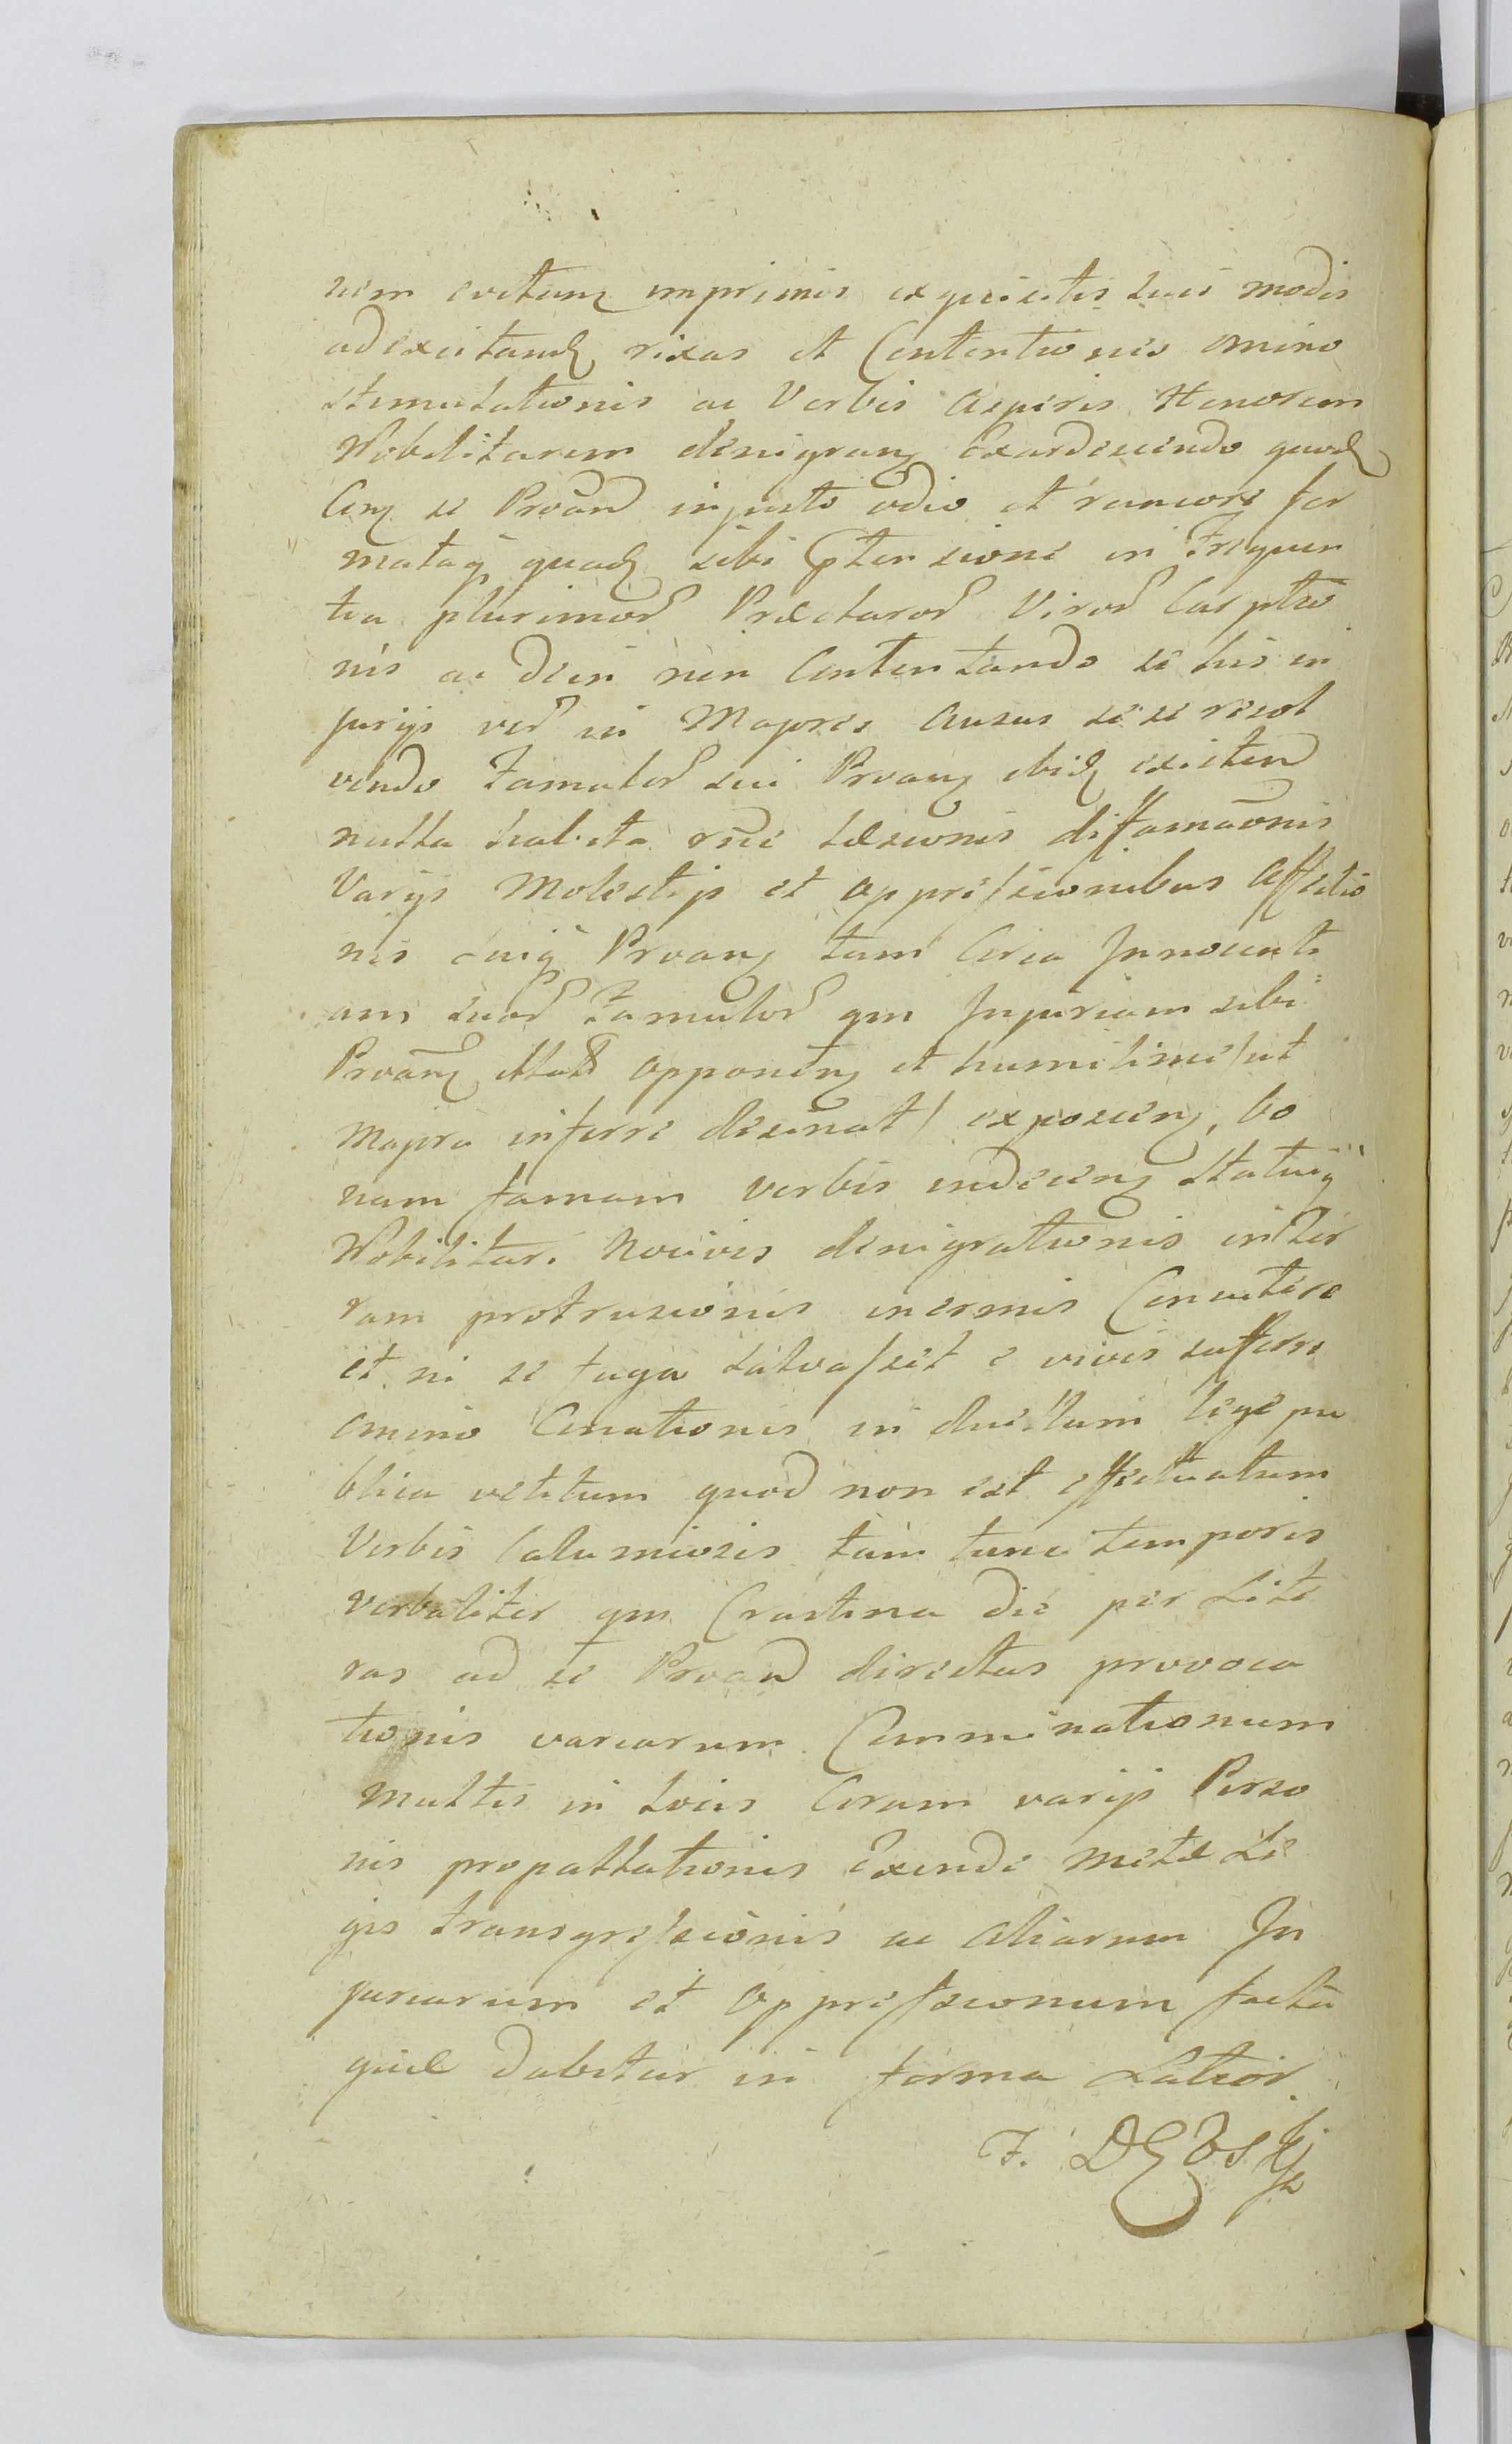 nem evitan imprimis exquisitis suis modis
ad excitand rixas et Contentiones omino
stimulationis ac Verbis Asperis Honorem
Nobilitarem denigran Exardescendo quod
Cun se Proand injusto odio et rancore for
mataq quad sibi pten sione in Frequen
tia plurimor Præclaror Viror Casptio
nis ac Dein non Contentando se his in
jurijs ver in Majores Ausus sese resol
vendo Famulor sui Proan ibid existen
nulla habita rne Læsionis diffamaonis
Varijs Molestijs et oppressionibus Affectio
nis cuiq Proan tam Circa Innocenti
am suor Famulor qm Injuriam sibi
Proan illat opponen et humilime ut
Majora inferre desinat / exposcen, bo
nam famam verbis indecen Statuiq
Nobilitari Nocivis denigrationis in Ter
ram protrusionis inermis Concutere
et ni se fuga salvasset e vivis sufferre
omino Conationis in duellum lege pu
blica vetitum quod non est effectuatum
Verbis Calumniosis tam tunc temporis
verbaliter qm Crastina die per Lite
ras ad se Proand directas provoca
tionis variarum Comminationum
Multis in Locis Coram varijs Perso
nis propallationis Exinde Metæ Le
gis transgressionis ac Aliarum In
juriarum et oppressionum facta
quæ Dabitur in forma Latior
F.